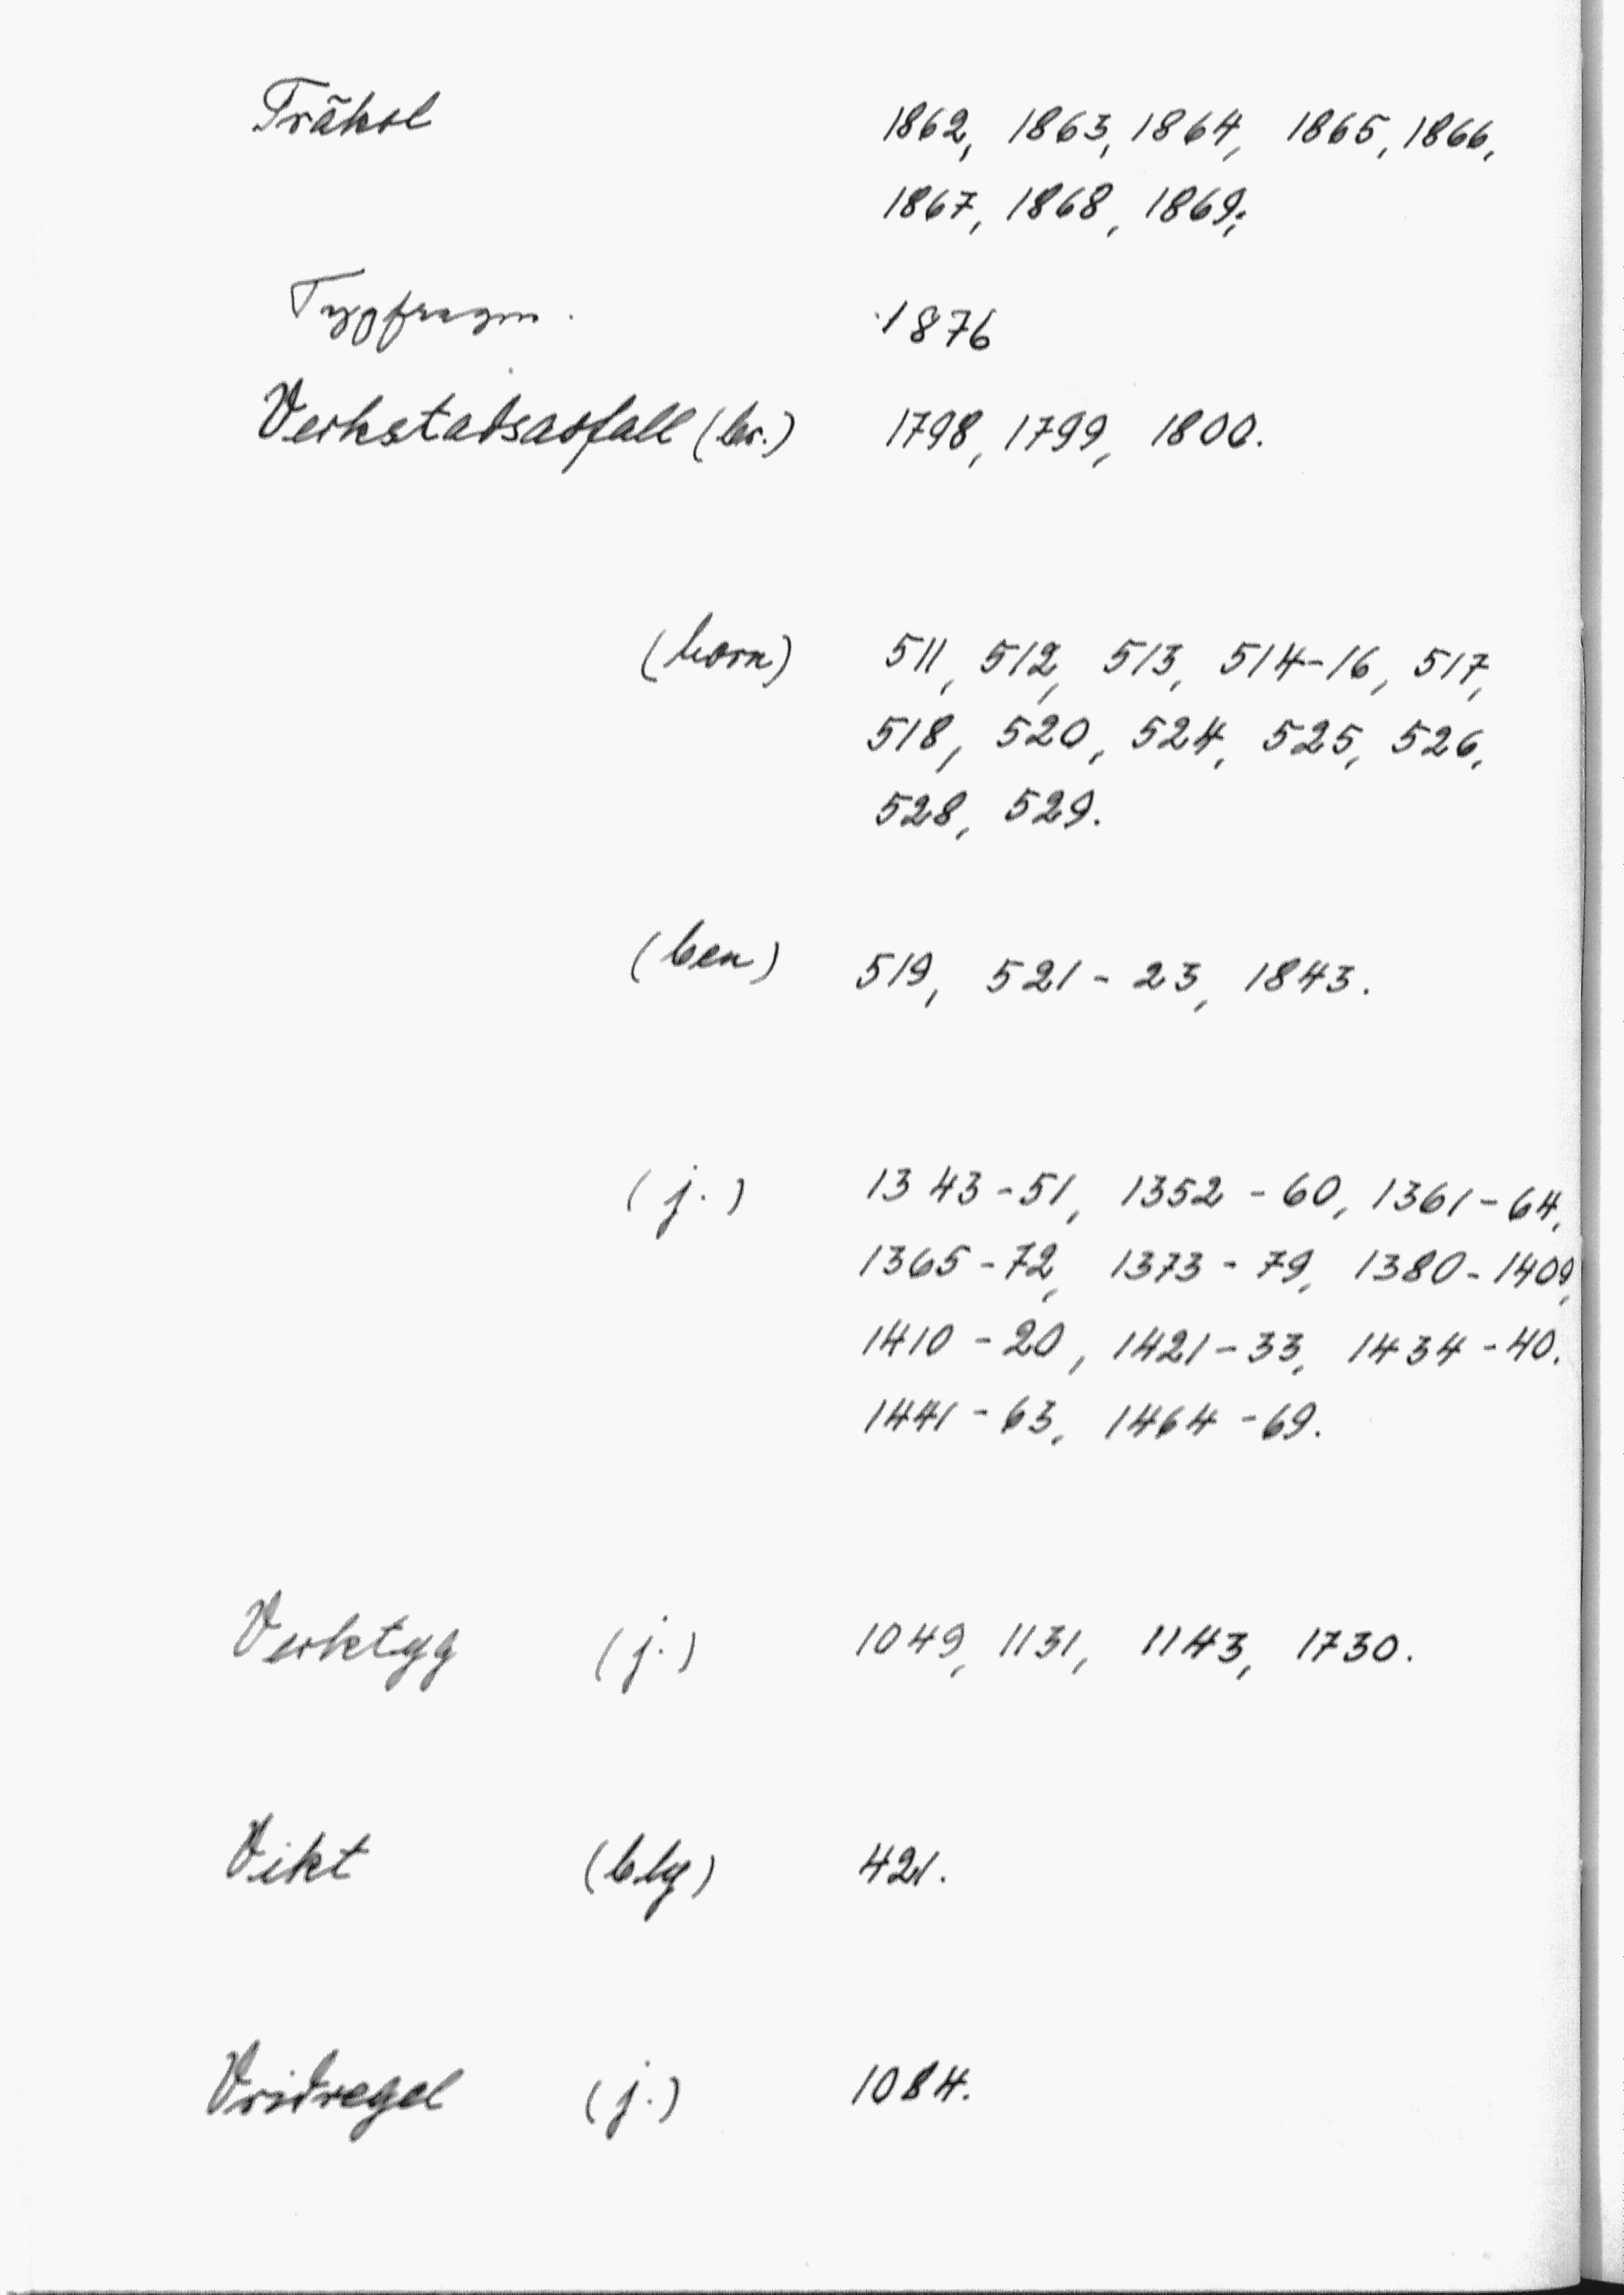 Träkol 1862, 1863, 1864, 1865, 1866,
1867, 1868, 1869;
Tygfragm. 1876
Verkstadsavfall (br.) 1798, 1799, 1800.
(horn) 511, 512, 513, 514-16, 517,
518, 520, 524, 525, 526,
528, 529.
(ben) 519, 521-23, 1843.
(j.) 1343-51, 1352-60, 1361-64,
1365-72, 1373-79, 1380-1409,
1410-20, 1421-33, 1434-40.
1441-63, 1464-69.
Verktyg (j.) 1049, 1131, 1143, 1730.
Vikt (bly) 421.
Vridregel (j.) 1084.